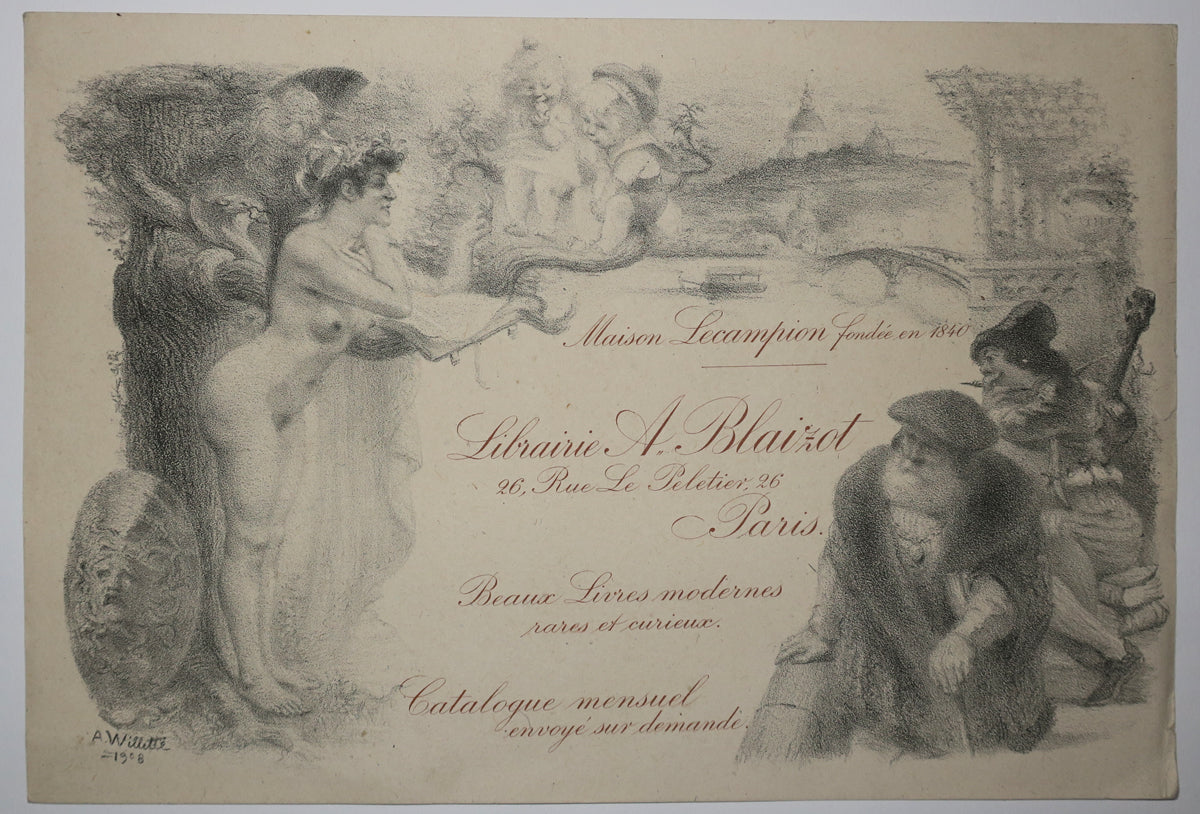 Maison Lecampion fondée en 1840
Librairie A. Blaizot
26, Rue Le Peletier, 26
Paris.
Beaux Livres modernes
rares et curieux.
Catalogue mensuel
envoyé sur demande.
A. Willette
1908